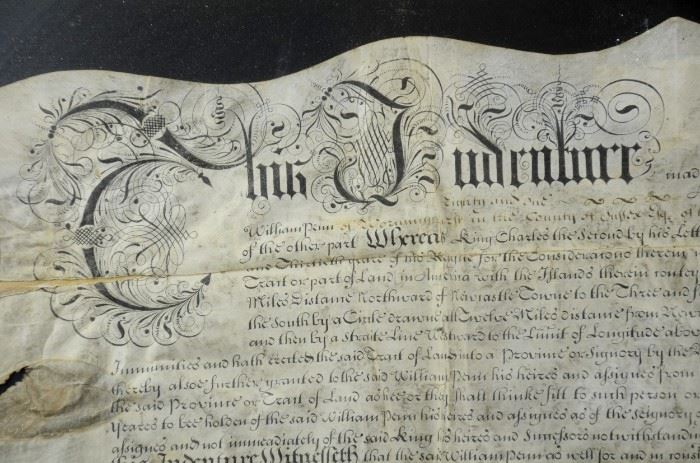 This Indenture mad
Eighty and one
William Penn of Worminghurst in the County of Sussex Esq of
of the other part Whereas King Charles the Second by his Lett
and Thirtieth yeare of his Reigne for the Consideracons therein
Tract or part of Land in America with the Islands therein
Miles Distant Northward of Newcastle Towne to the Three and
the South by a Circle drawne att Twelve Miles distant from New
and then by a Straite Line Westward to the Limitt of Longitude
Immunities and hath erected the said Tract of Land into a Province or Signory by the
thereby alsoe further granted to the said William Penn his heires and assignes from
the said Province or Tract of Land as hee or they shall thinke fitt to such person or
yeares to bee holden of the said William Penn his heires and assignes as of the Seignory
assignes and not immediately of the said King his heires and Successors notwithstandin
this Indenture Witnesseth that the said William Penn as well for and in